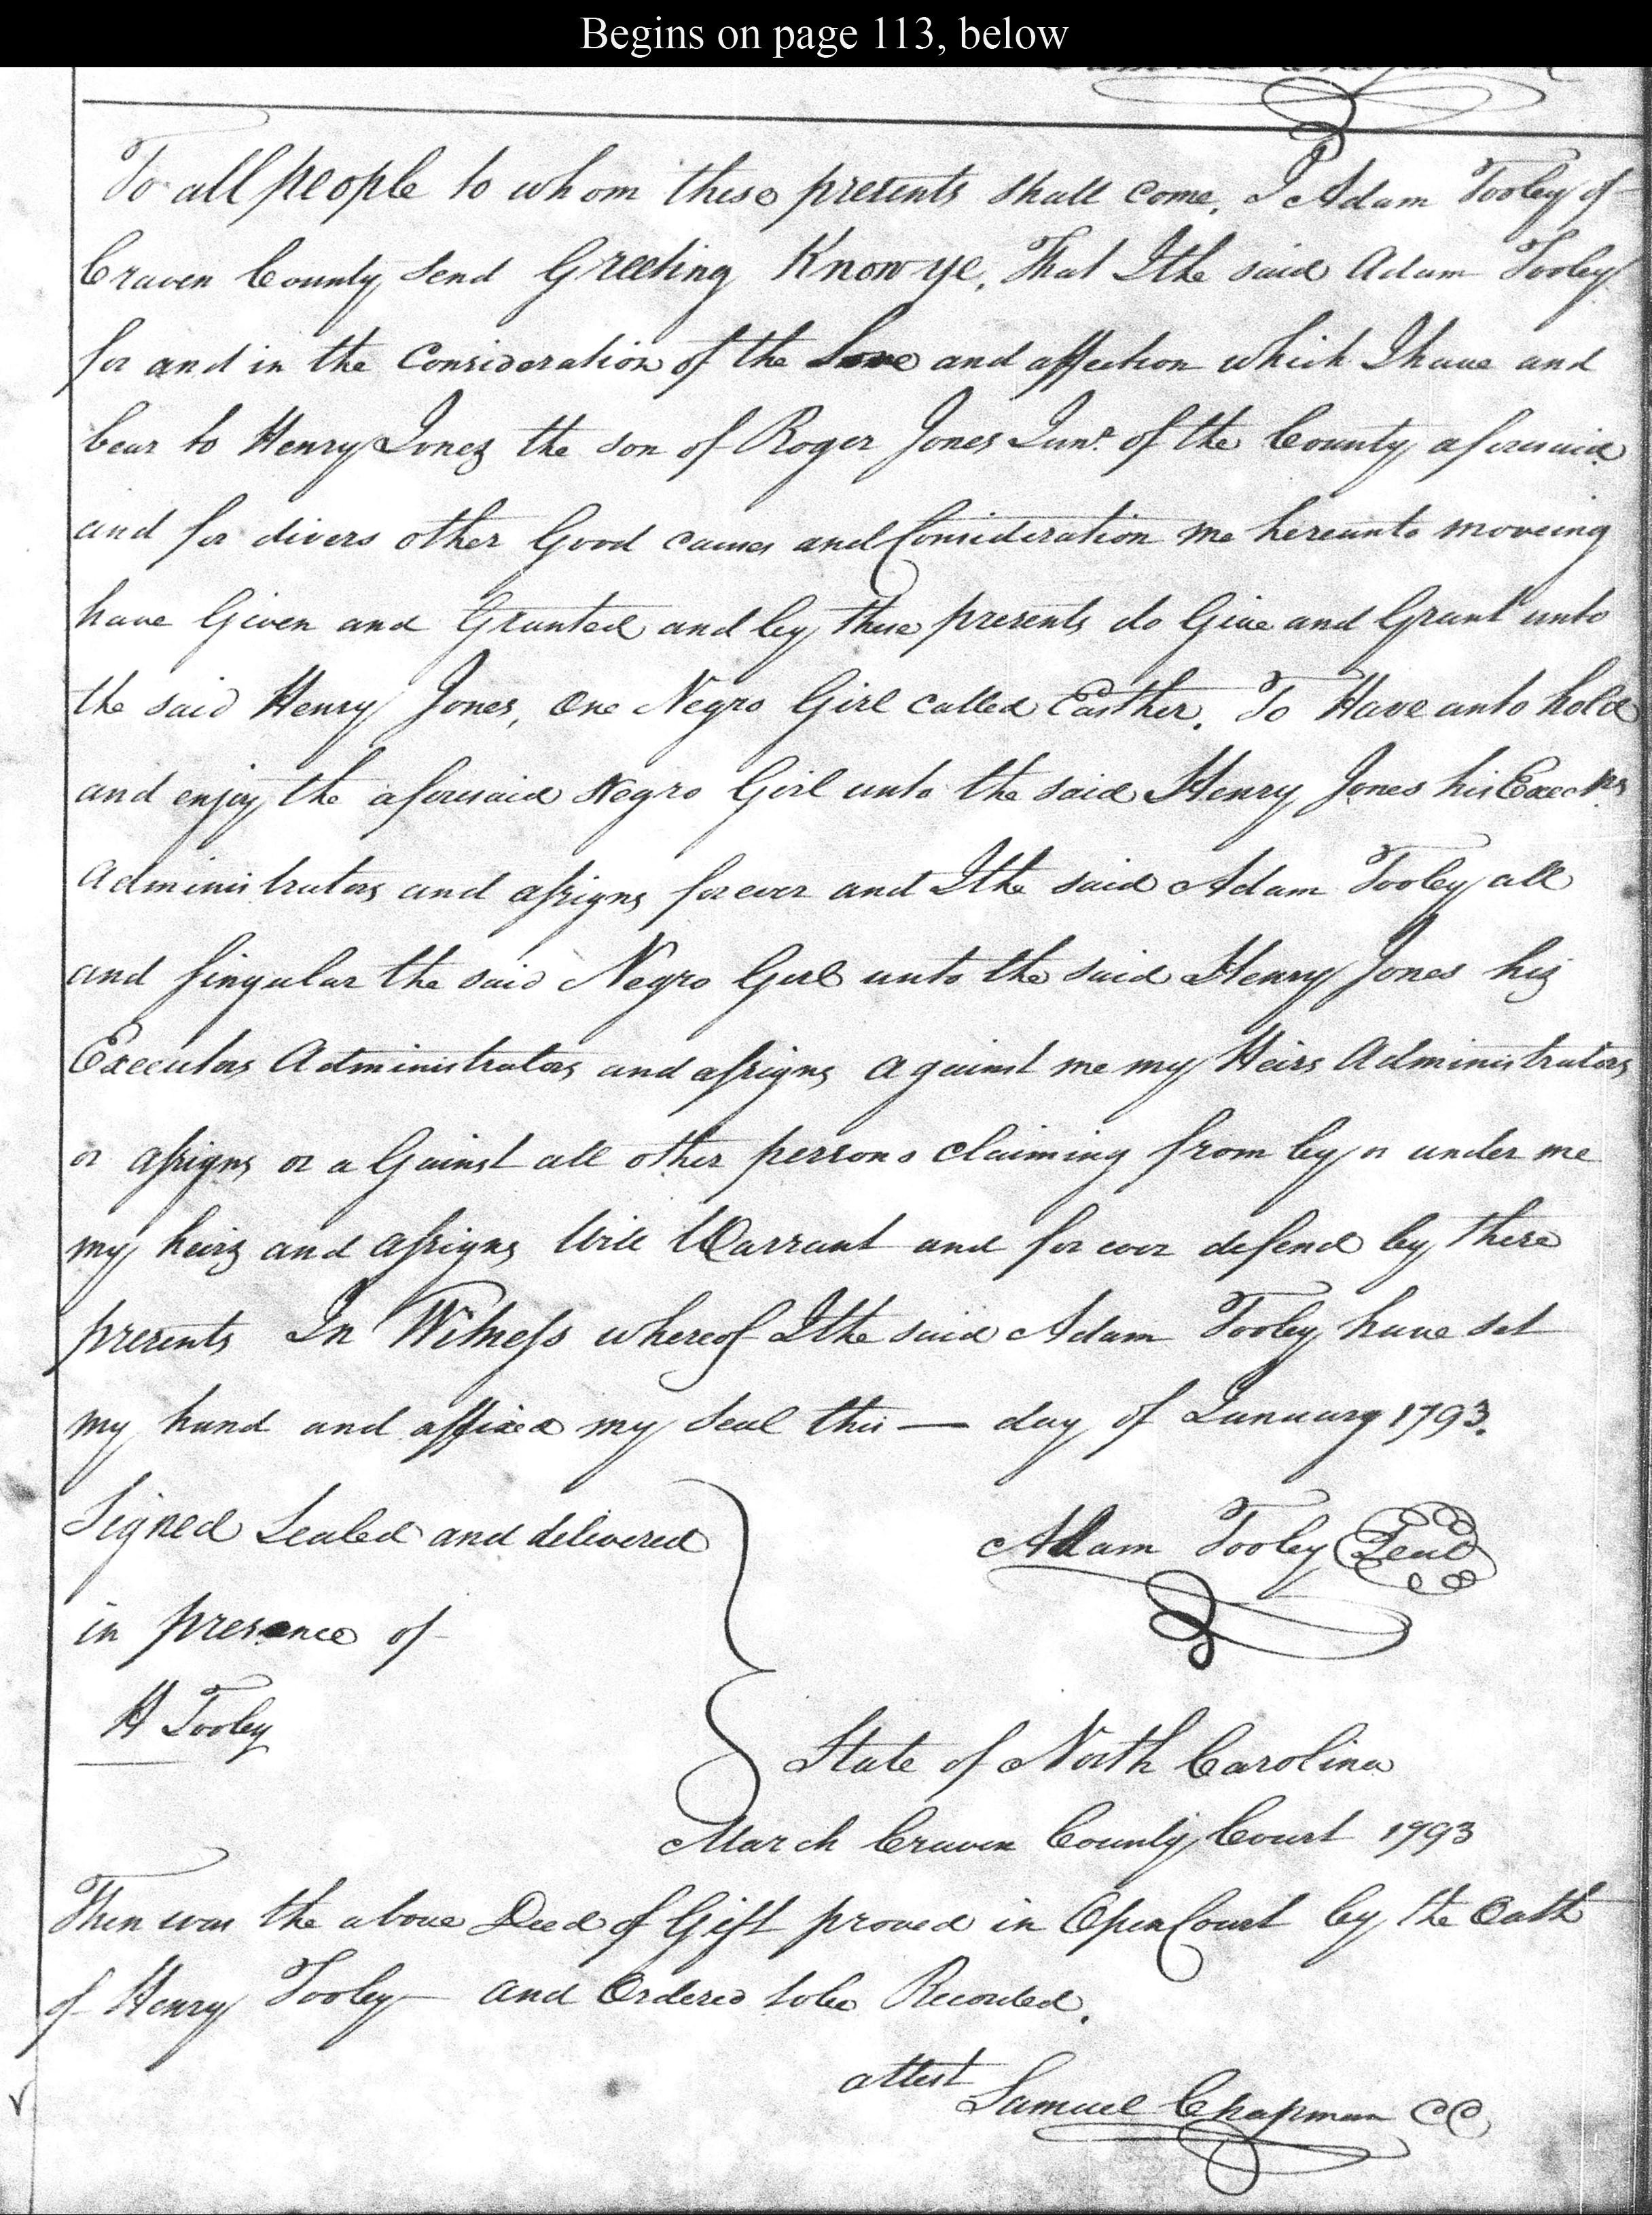 Begins on page 113, below
To all people to whom these presents shall come, I Adam Tooley of
Craven County send Greeting Know ye, That I the said Adam Tooley
for and in the Consideration of the Love and affection which I have and
bear to Henry Jones the son of Roger Jones Junr. of the County aforesaid
and for divers other Good causes and Consideration me hereunto moveing
have Given and Granted and by these presents do Give and Grant unto
the said Henry Jones, One Negro Girl called Easther. To Have unto hold
and enjoy the aforesaid Negro Girl unto the said Henry Jones his Execrs
Administrators and assigns forever and I the said Adam Tooley all
and singular the said Negro Girl unto the said Henry Jones his
Executors Administrators and assigns against me my Heirs Administrators
or assigns or a Gainst all other persons claiming from by or under me
my heirs and assigns Will Warrant and for ever defend by these
presents In Witness whereof I the said Adam Tooley have set
my hand and affixed my Seal this — day of January 1793.
Signed Sealed and delivered
Adam Tooley Seal
in presence of
H Tooley
State of North Carolina
March Craven County Court 1793
Then was the above Deed of Gift proved in Open Court by the Oath
of Henry Tooley — and Ordered to be Recorded.
attest
Samuel Chapman CC